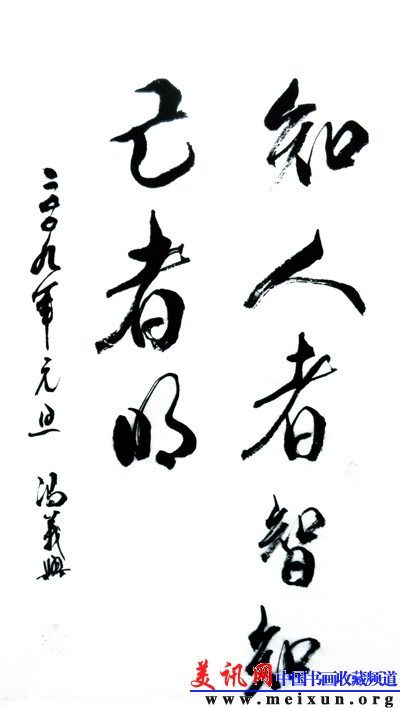 知人者智知
己者明
二〇〇九年元旦 冯义兴
美讯网中国书画收藏频道
www.meixun.org